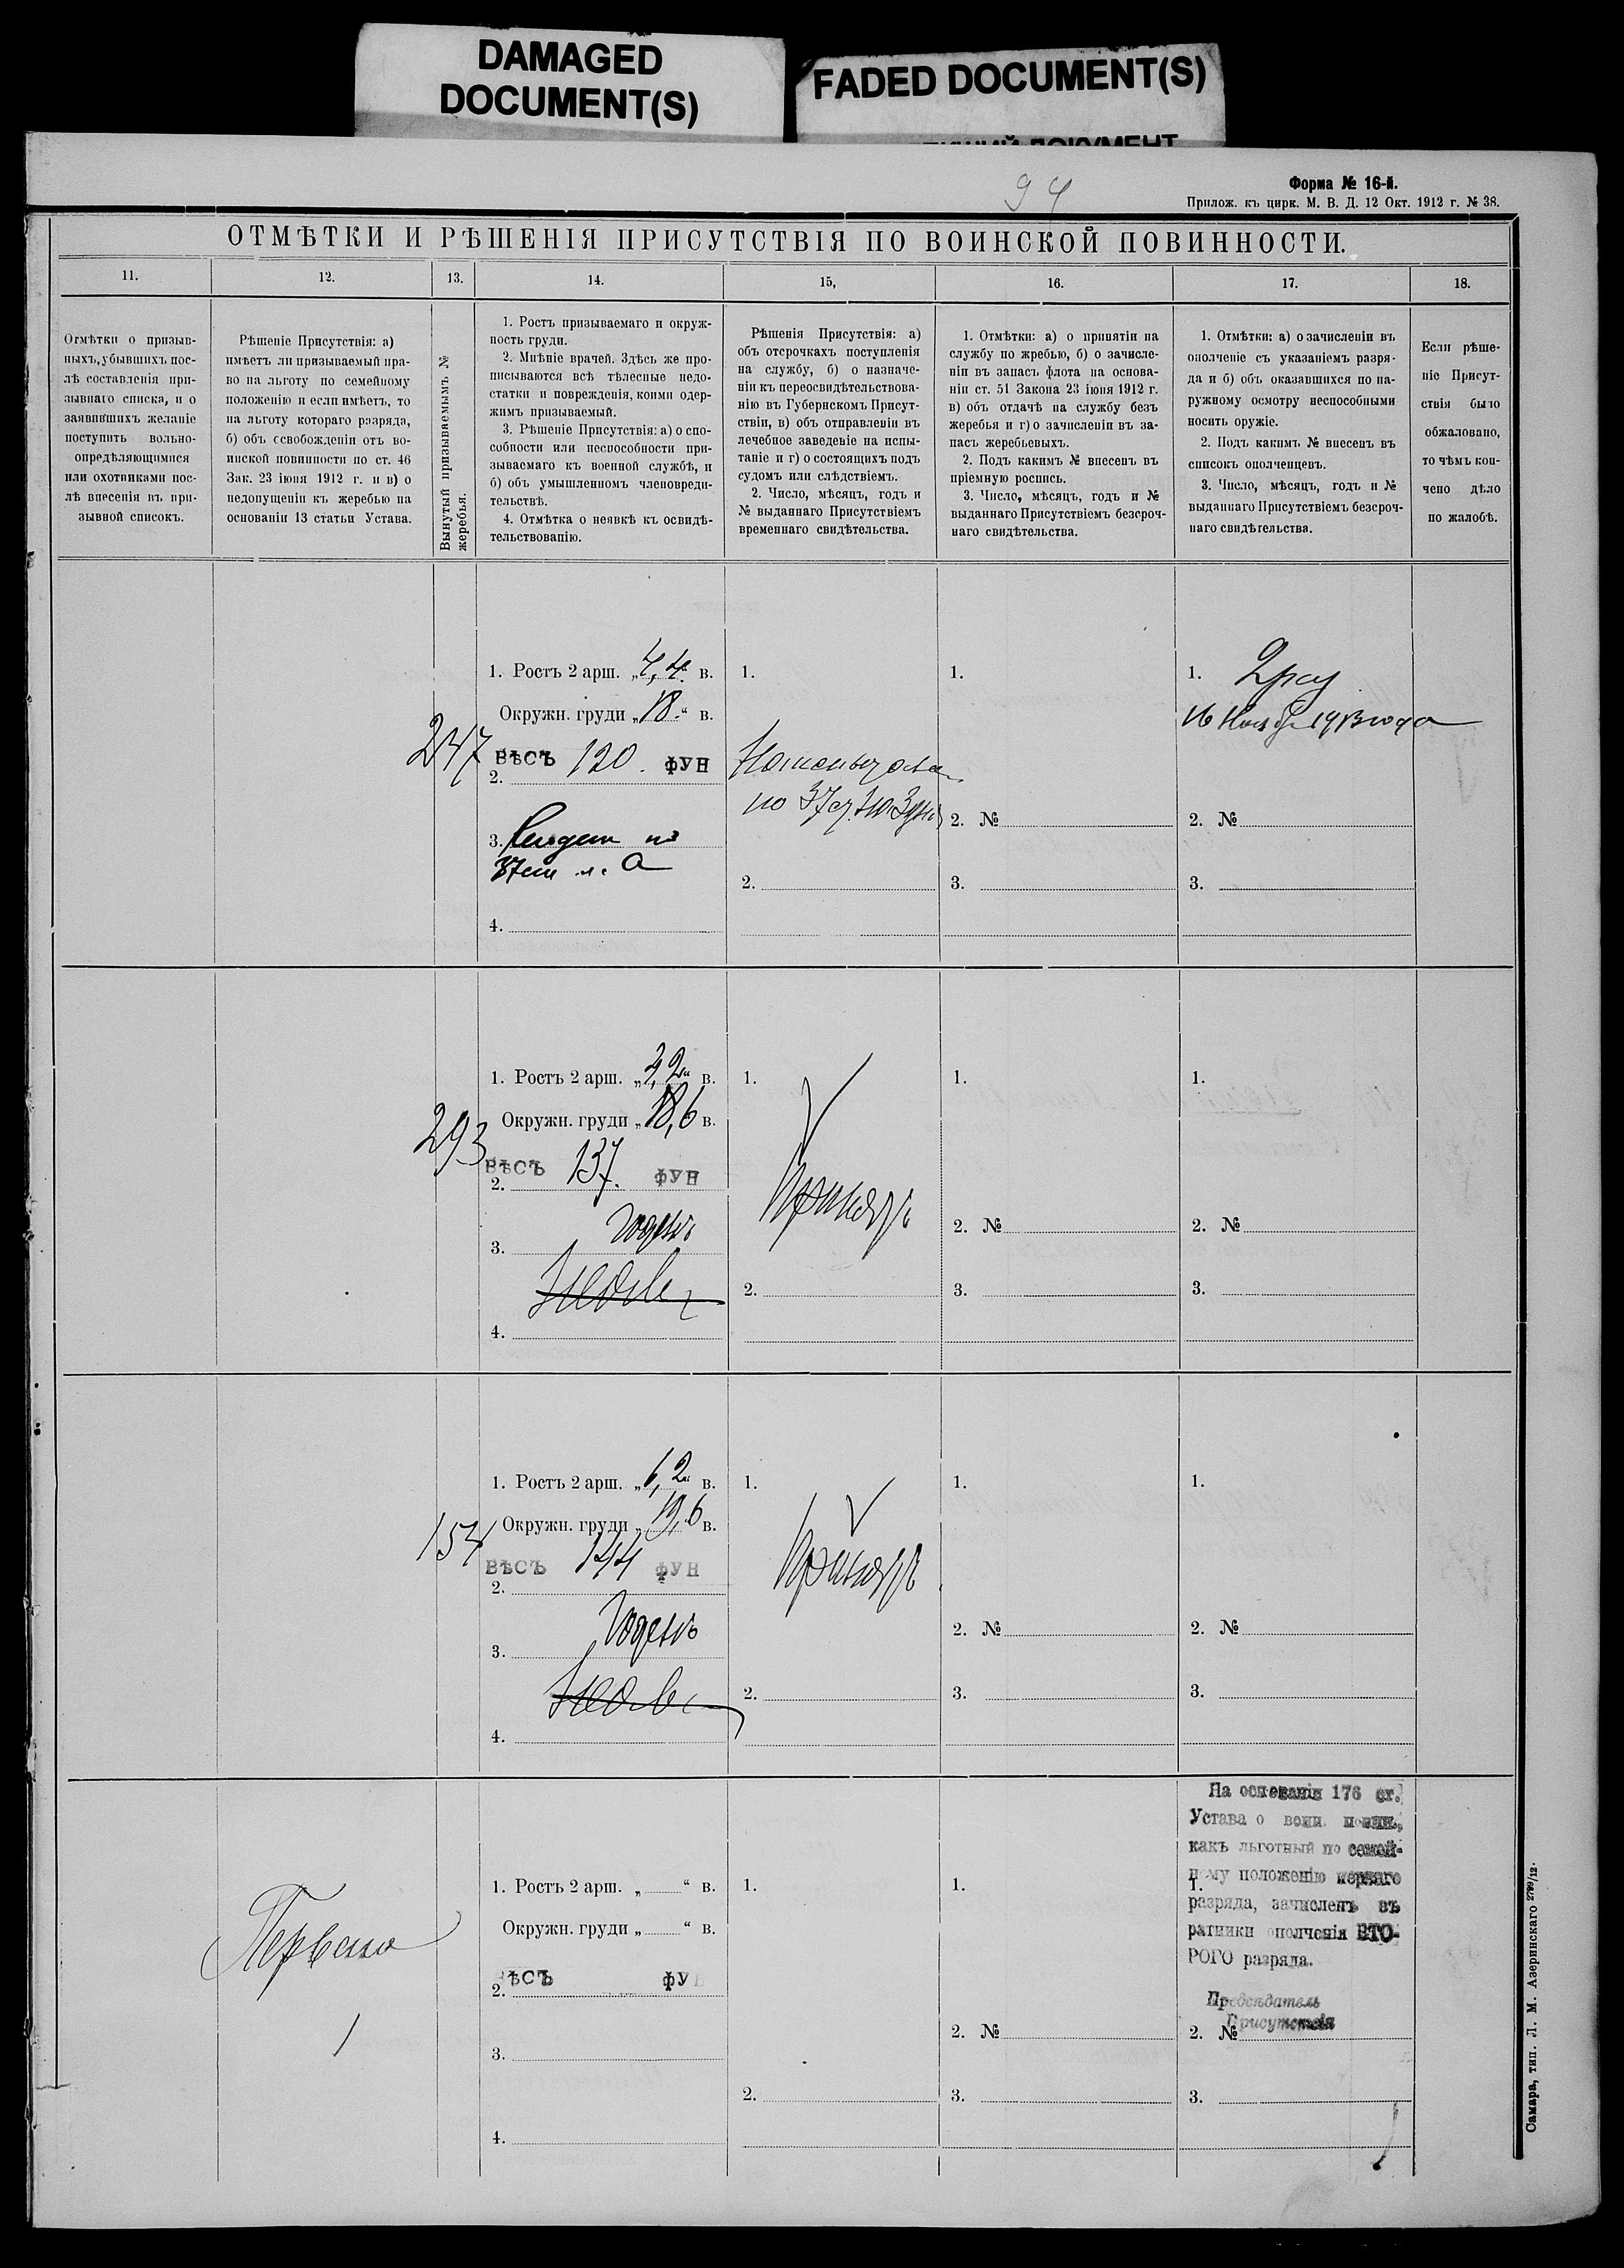 DAMAGED
DOCUMENT(S)
FADED DOCUMENT(S)
94
Форма № 16-й.
Прилож. къ цирк. М. В. Д. 12 Окт. 1912 г. № 38.
ОТМѢТКИ И РѢШЕНІЯ ПРИСУТСТВІЯ ПО ВОИНСКОЙ ПОВИННОСТИ.
11.
12.
13.
14.
15,
16.
17.
18.
Отмѣтки о призыв-
ныхъ, убывшихъ пос-
лѣ составленія при-
зывнаго списка, и о
заявившихъ желаніе
поступить вольно-
опредѣляющимися
или охотниками пос-
лѣ внесенія въ при-
зывной списокъ.
Рѣшеніе Присутствія: а)
имѣетъ ли призываемый пра-
во на льготу по семейному
положенію и если имѣетъ, то
на льготу котораго разряда,
б) объ освобожденіи отъ во-
инской повинности по ст. 46
Зак. 23 іюня 1912 г. и в) о
недопущеніи къ жеребью на
основаніи 13 статьи Устава.
Вынутый призываемымъ №
жеребья.
1. Ростъ призываемаго и окруж-
ность груди.
2. Мнѣніе врачей. Здѣсь же про-
писываются всѣ тѣлесные недо-
статки и поврежденія, коими одер-
жимъ призываемый.
3. Рѣшеніе Присутствія: а) о спо-
собности или неспособности при-
зываемаго къ военной службѣ, и
б) объ умышленномъ членовреди-
тельствѣ.
4. Отмѣтка о неявкѣ къ освидѣ-
тельствованію.
Рѣшенія Присутствія: а)
объ отсрочкахъ поступленія
на службу, б) о назначе-
ніи къ переосвидѣтельствова-
нію въ Губернскомъ Присут-
ствіи, в) объ отправленіи въ
лечебное заведеніе на испы-
таніе и г) о состоящихъ подъ
судомъ или слѣдствіемъ.
2. Число, мѣсяцъ, годъ и
№ выданнаго Присутствіемъ
временнаго свидѣтельства.
1. Отмѣтки: а) о принятіи на
службу по жребью, б) о зачисле-
ніи въ запасъ флота на основа-
ніи ст. 51 Закона 23 іюня 1912 г.
в) объ отдачѣ на службу безъ
жеребья и г) о зачисленіи въ за-
пасъ жеребьевыхъ.
2. Подъ какимъ № внесенъ въ
пріемную роспись.
3. Число, мѣсяцъ, годъ и №
выданнаго Присутствіемъ безсроч-
наго свидѣтельства.
1. Отмѣтки: а) о зачисленіи въ
ополченіе съ указаніемъ разря-
да и б) объ оказавшихся по на-
ружному осмотру неспособными
носить оружіе.
2. Подъ какимъ № внесенъ въ
списокъ ополченцевъ.
3. Число, мѣсяцъ, годъ и №
выданнаго Присутствіемъ безсроч-
наго свидѣтельства.
Если рѣше-
ніе Присут-
ствія было
обжаловано,
то чѣмъ кон-
чено дѣло
по жалобѣ.
247
1. Ростъ 2 арш. „4,4" в.
Окружн. груди „18" в.
ВѢСЪ 120 ФУН
2.
3.
4.
1.
по 37 ст.
2.
1.
2. №
3.
1.
16 Ноября 1913 года
2. №
3.
293
1. Ростъ 2 арш. „3,2" в.
Окружн. груди „18,6 в.
ВѢСЪ 137. ФУН
2.
Годенъ
3.
4.
1.
Принятъ
2.
1.
2. №
3.
1.
2. №
3.
154
1. Ростъ 2 арш. „6,2" в.
Окружн. груди „19,6 в.
ВѢСЪ 144 ФУН
2.
Годенъ
3.
4.
1.
Принятъ
2.
1.
2. №
3.
1.
2. №
3.
1
1. Ростъ 2 арш. „ " в.
Окружн. груди „ " в.
ВѢСЪ ФУН
2.
3.
4.
1.
2.
1.
2. №
3.
На основаніи 176 ст.
Устава о воин. повин.,
какъ льготный по семей-
ному положенію перваго
1.
разряда, зачисленъ въ
ратники ополченія ВТО-
РОГО разряда.
Предсѣдатель
Присутствія
2. №
3.
Самара, тип. Л. М. Азеринскаго 2799/12.